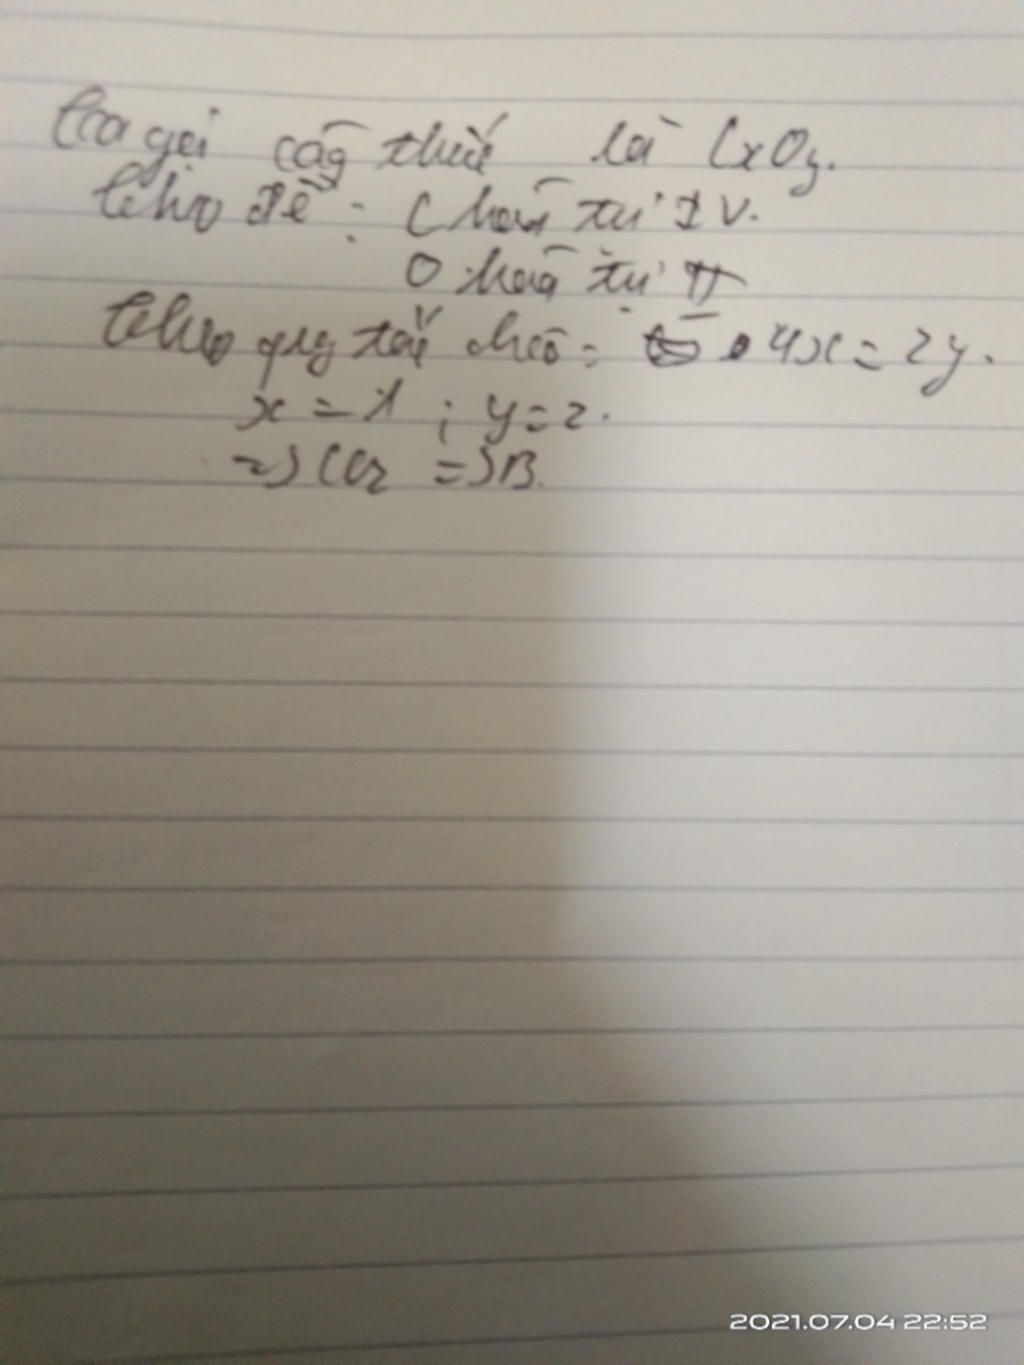 Ta gọi công thức là CxOy.
Theo đề: C hoá trị IV.
O hoá trị II
Theo quy tắc chéo: 4x = 2y.
x = 1 ; y = 2.
=> CO2 => B.
2021.07.04 22:52